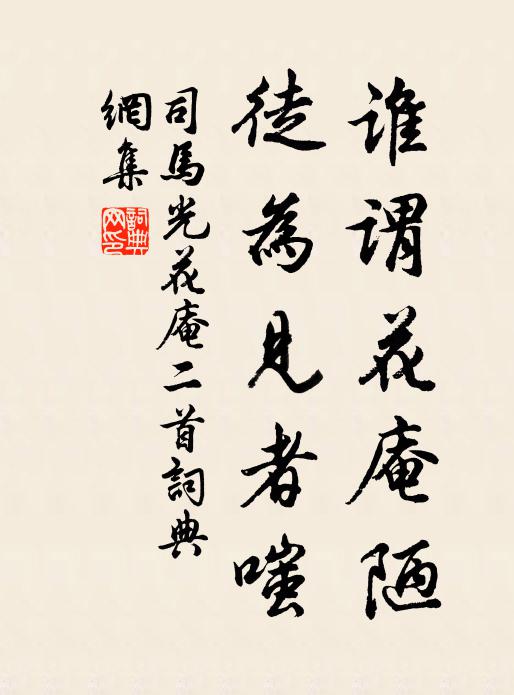 谁謂花庵陋
徒為見者嗤
司馬光花庵二首詞典
網集
詞典网印